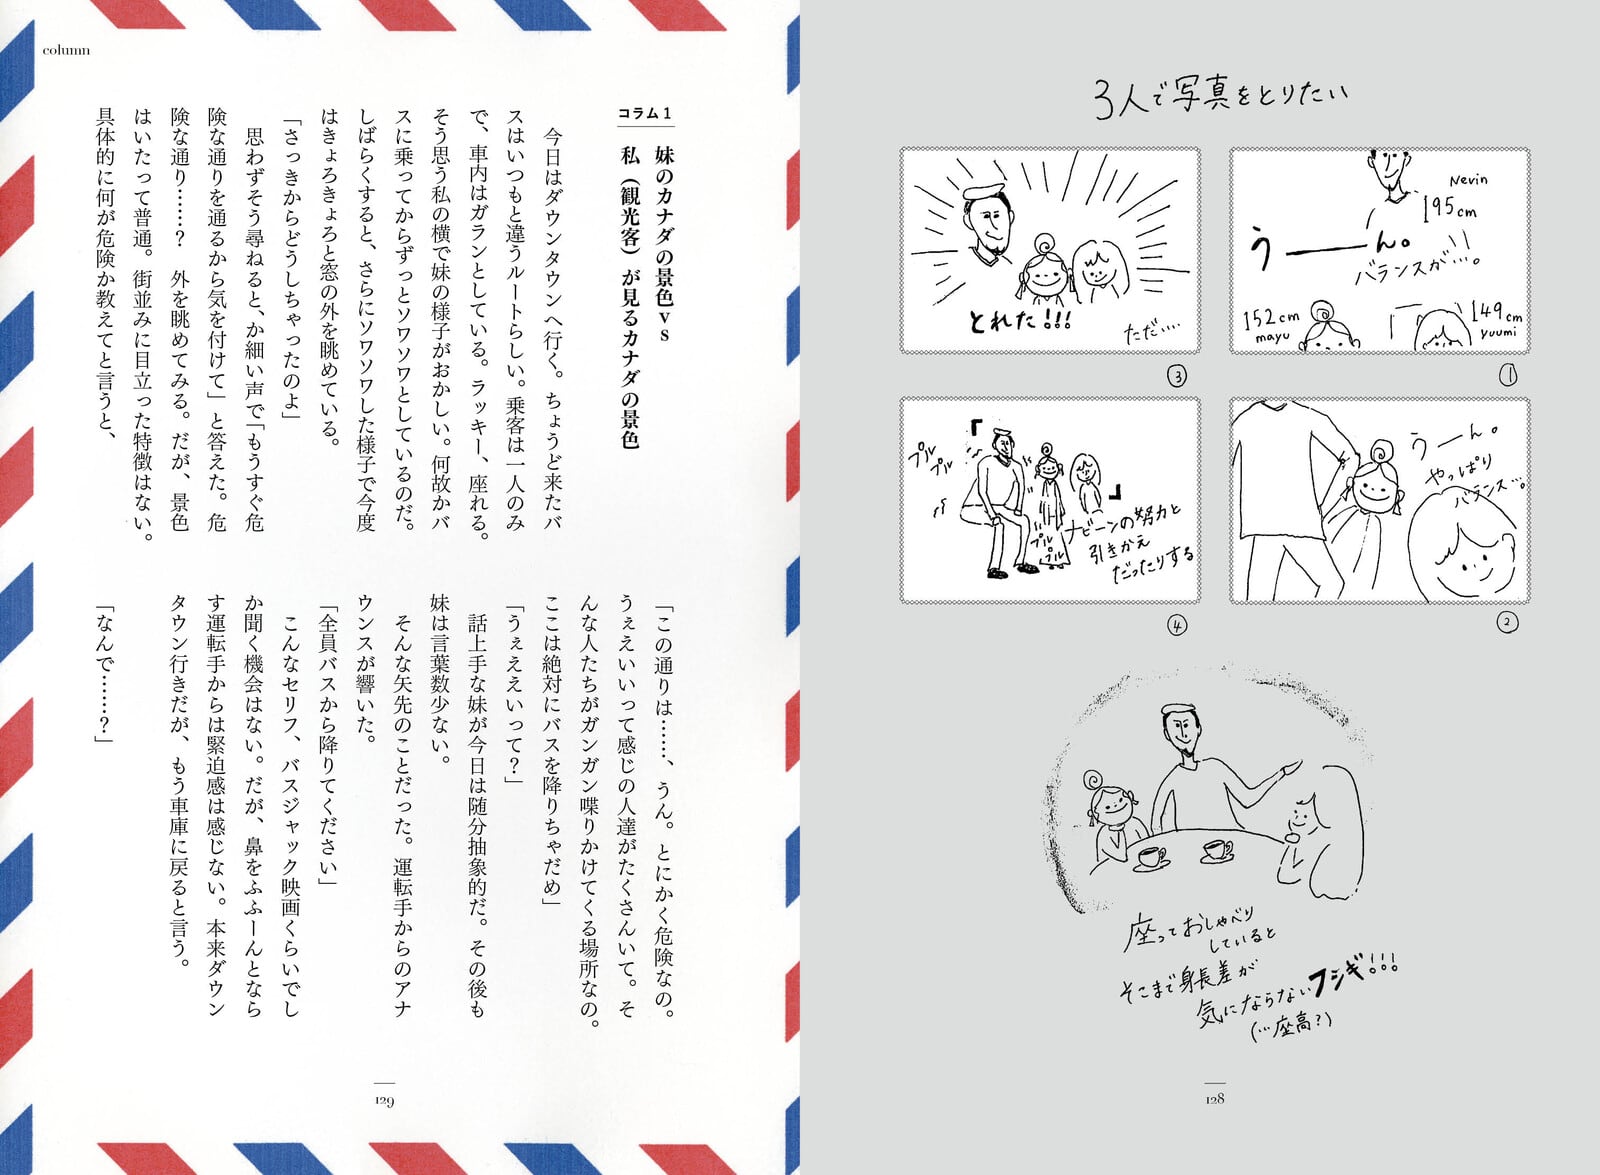 3人で写真をとりたい
Nevin
195cm
うーーん。
バランスが…。
152cm
mayu
149cm
yuumi
①
うーん。
やっぱり
バランス…。
②
とれた!!!
ただ….
③
『
プル
プル
プル
プル
』
ナビーンの努力と
引きかえ
だったりする
④
座っておしゃべり
していると
そこまで身長差が
気にならないフシギ!!!
(…座高?)
128
column
コラム1
妹のカナダの景色vs
私（観光客）が見るカナダの景色
今日はダウンタウンへ行く。ちょうど来たバ
スはいつもと違うルートらしい。乗客は一人のみ
で、車内はガランとしている。ラッキー、座れる。
そう思う私の横で妹の様子がおかしい。何故かバ
スに乗ってからずっとソワソワとしているのだ。
しばらくすると、さらにソワソワした様子で今度
はきょろきょろと窓の外を眺めている。
「さっきからどうしちゃったのよ」
思わずそう尋ねると、か細い声で「もうすぐ危
険な通りを通るから気を付けて」と答えた。危
険な通り……？　外を眺めてみる。だが、景色
はいたって普通。街並みに目立った特徴はない。
具体的に何が危険か教えてと言うと、
「この通りは……、うん。とにかく危険なの。
うぇえいいって感じの人達がたくさんいて。そ
んな人たちがガンガン喋りかけてくる場所なの。
ここは絶対にバスを降りちゃだめ」
「うぇええいって？」
話上手な妹が今日は随分抽象的だ。その後も
妹は言葉数少ない。
そんな矢先のことだった。運転手からのアナ
ウンスが響いた。
「全員バスから降りてください」
こんなセリフ、バスジャック映画くらいでし
か聞く機会はない。だが、鼻をふふーんとなら
す運転手からは緊迫感は感じない。本来ダウン
タウン行きだが、もう車庫に戻ると言う。
「なんで……？」
129